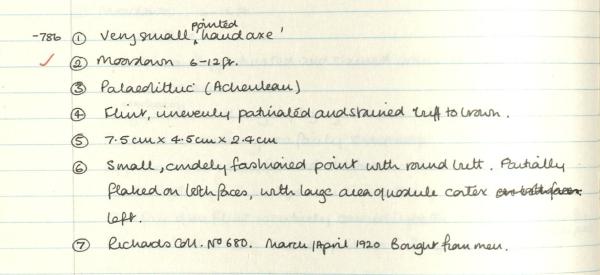 -786 ① Very small, pointed handaxe'
✓ ② Moordown 6-12ft.
③ Palaeolithic (Acheulean)
④ Flint, unevenly patinated and stained buff to brown.
⑤ 7.5cm x 4.5cm x 2.4cm
⑥ Small, crudely fashioned point with round butt. Partially
flaked on both faces, with large area of nodule cortex on both faces
left.
⑦ Richards Coll. No 680. March/April 1920 Bought from men.